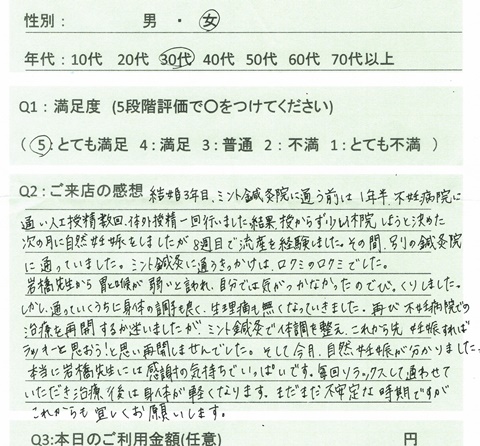 性別： 男 ・ 女
年代：10代 20代 30代 40代 50代 60代 70代以上
Q1：満足度 (5段階評価で〇をつけてください)
( 5：とても満足 4：満足 3：普通 2：不満 1：とても不満 )
Q2：ご来店の感想 結婚3年目、ミント鍼灸院に通う前は1年半、不妊病院に
通い人工授精数回、体外授精一回行いました。結果、授からず少し休院しようと決めた
次の月に自然妊娠をしましたが8週目で流産を経験しました。その間、別の鍼灸院
に通っていました。ミント鍼灸に通うきっかけは、ロクミのロクミでした。
岩橋先生から胃と喉が弱いと言われ、自分では気がつかなかったのでびっくりしました。
しかし、通っていくうちに身体の調子も良く、生理痛も無くなっていきました。再び不妊病院での
治療を再開するか迷いましたがミント鍼灸で体調を整え、これから先妊娠すれば
ラッキーと思おう！と思い再開しませんでした。そして今月、自然妊娠が分かりました。
本当に岩橋先生には感謝の気持ちでいっぱいです。毎回リラックスして通わせて
いただき治療後は身体が軽くなります。まだまだ不安定な時期ですが
これからも宜しくお願いします。
Q3：本日のご利用金額(任意) 円